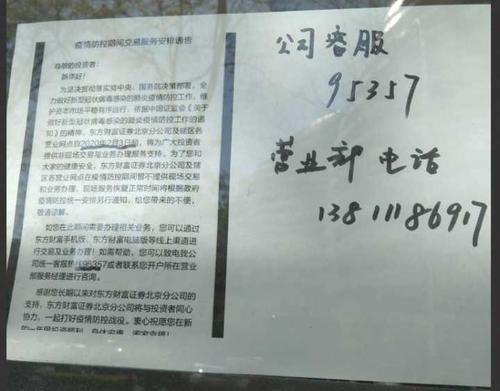 疫情防控期间交易服务安排通告
尊敬的投资者:
新年好!
为坚决贯彻落实党中央、国务院决策部署,全
力做好新型冠状病毒感染的肺炎疫情防控工作,维
护资本市场平稳有序运行,依据中国证监会《关于
做好新型冠状病毒感染的肺炎疫情防控工作的通
知》的精神,东方财富证券北京分公司及辖区各
营业网点自2020年2月3日起,将为广大投资者
提供非现场交易与业务办理服务支持。为了您和
大家的健康安全,东方财富证券北京分公司及辖
区各营业网点在疫情防控期间暂不提供现场交易
和业务办理,现场服务恢复正常时间将根据政府
疫情防控统一安排另行通知,给您带来的不便,
敬请谅解。
如您在此期间需要办理相关业务,您可以通过
东方财富手机版、东方财富电脑版等线上渠道进
行交易及业务办理!如需帮助,您可以致电我公
司统一客服热线95357或者联系您开户所在营业
部服务经理进行咨询。
感谢您长期以来对东方财富证券北京分公司的
支持,东方财富证券北京分公司将与投资者同心
协力,一起打好疫情防控战役。衷心祝愿您在新
的一年里投资顺利、身体安康、阖家幸福!
公司客服
95357
营业部电话
13811186917